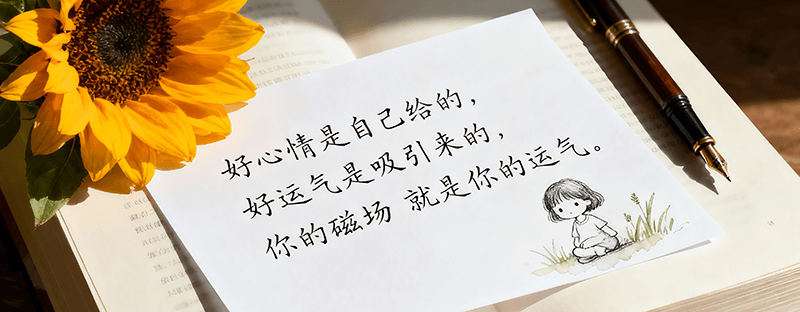 好心情是自己给的，
好运气是吸引来的，
你的磁场 就是你的运气。